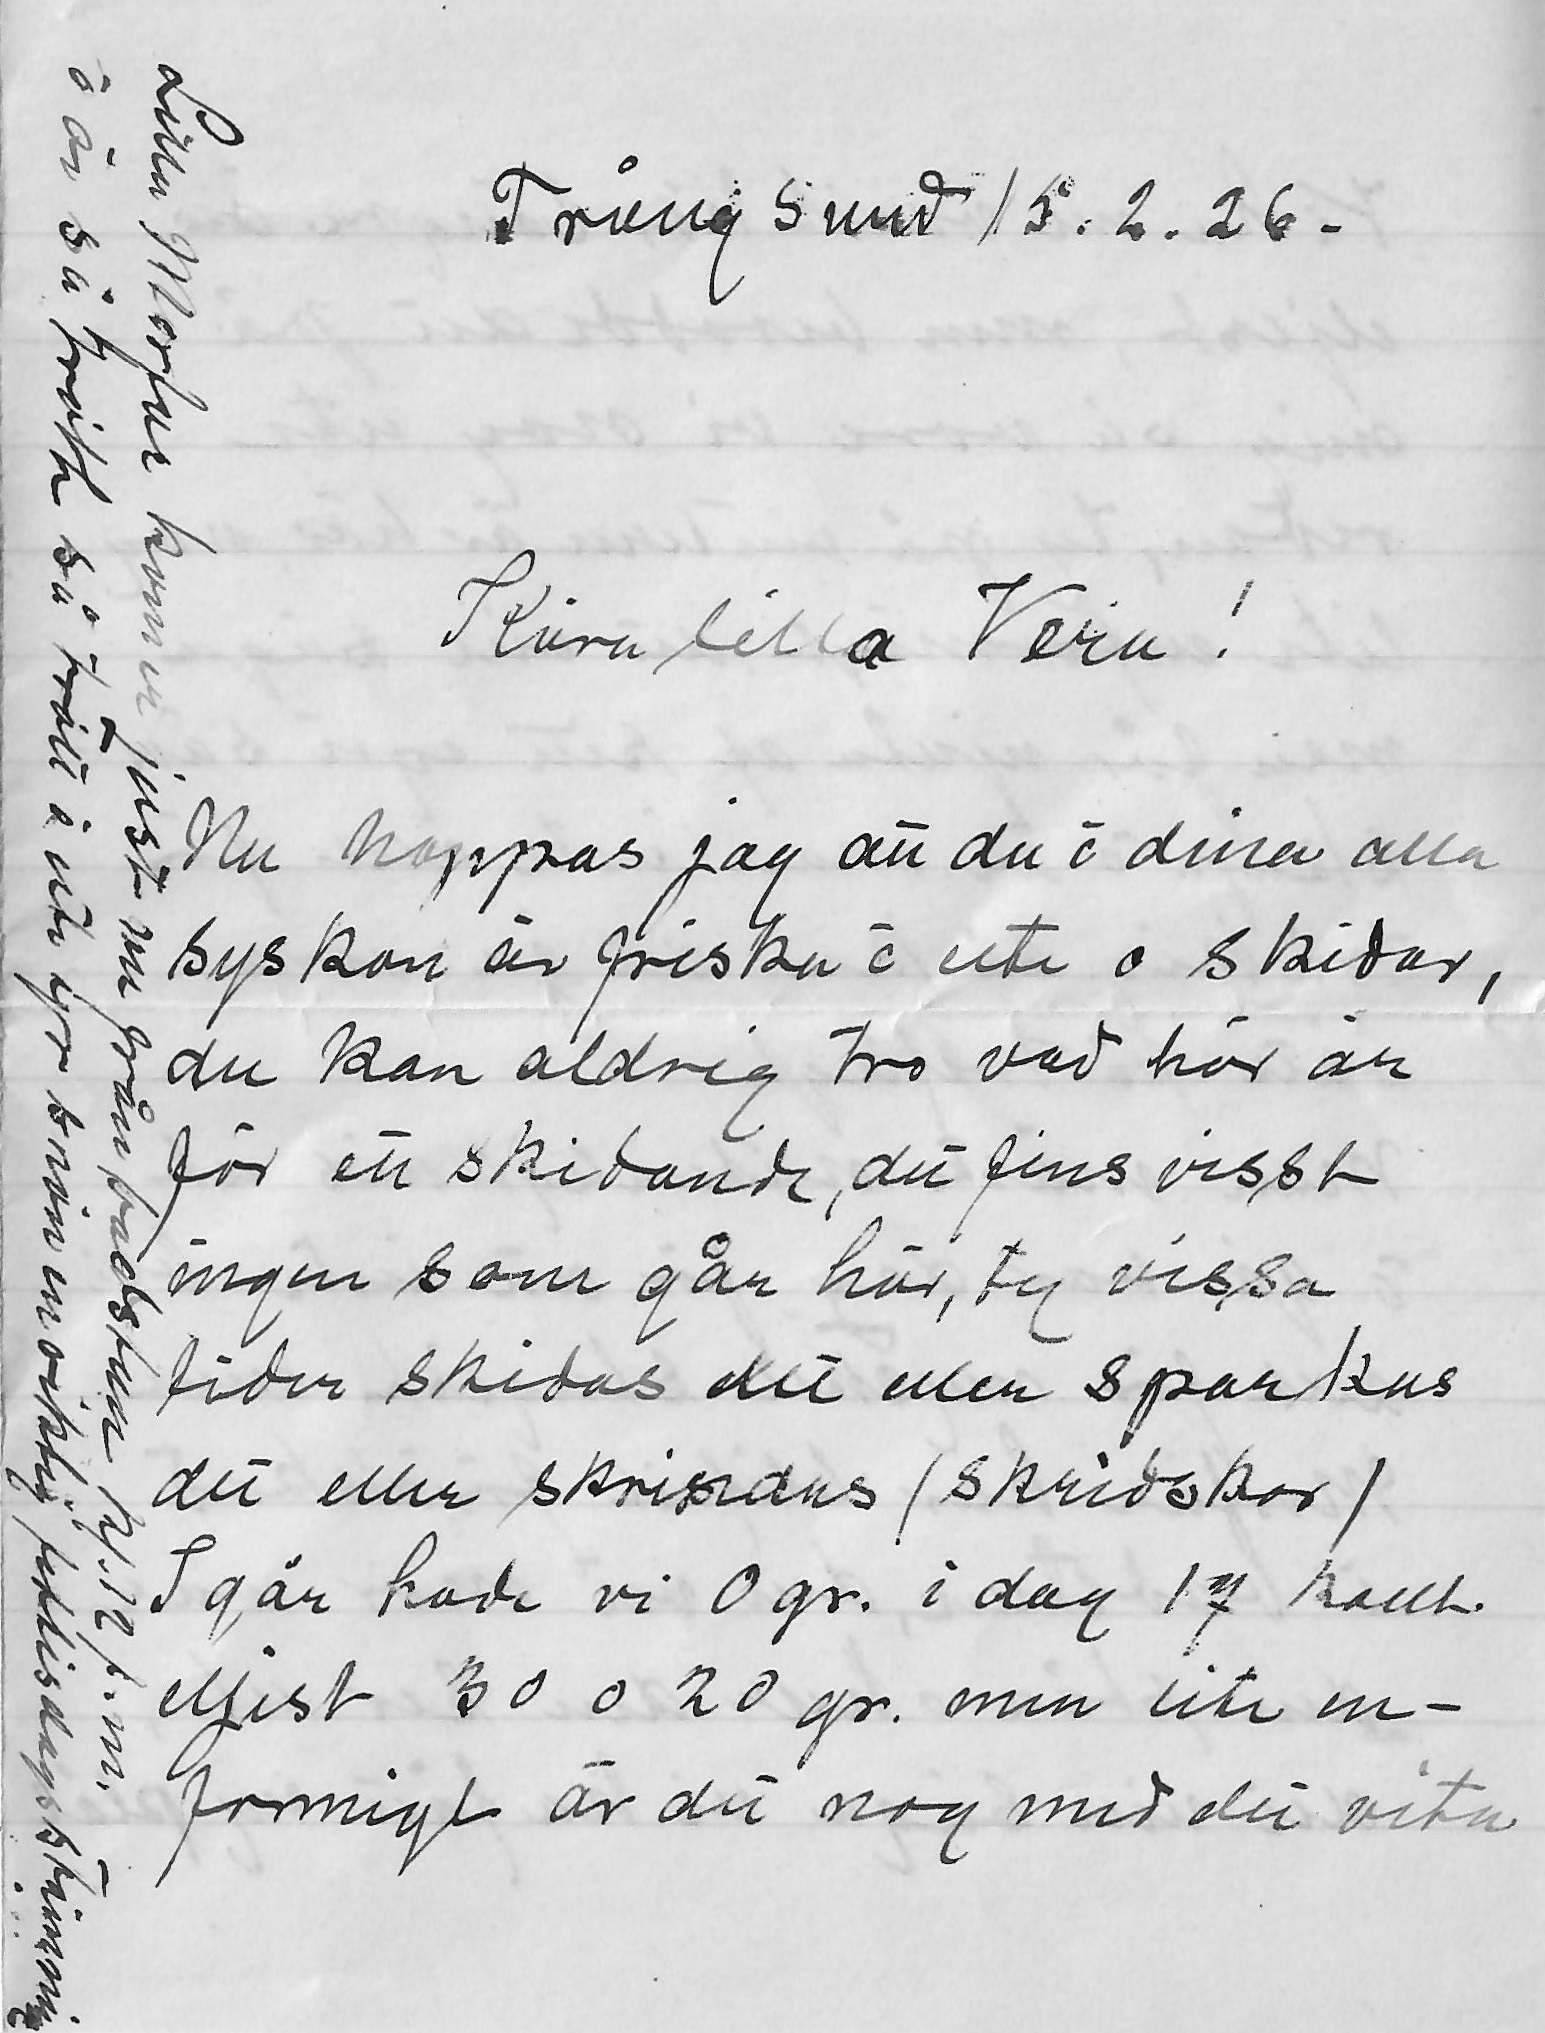 Trångsund 15.2.26-
Kära lilla Vera!
Nu hoppas jag att du o dina alla
syskon är friska o ute o skidar,
du kan aldrig tro vad här är
för ett skidande, det fins visst
ingen som går här, ty vissa
tider skidas det eller sparkas
det eller skrinnas / skridskor /
I går hade vi 0 gr. i dag 17 kallt
eljest 30 o 20 gr. men lite en-
formigt är det nog med det vita
Lilla Morfar kommer just nu från badstun kl. 12 f.m.
o är så trött så trött o ute yr snön en riktig fettisdagsstämning